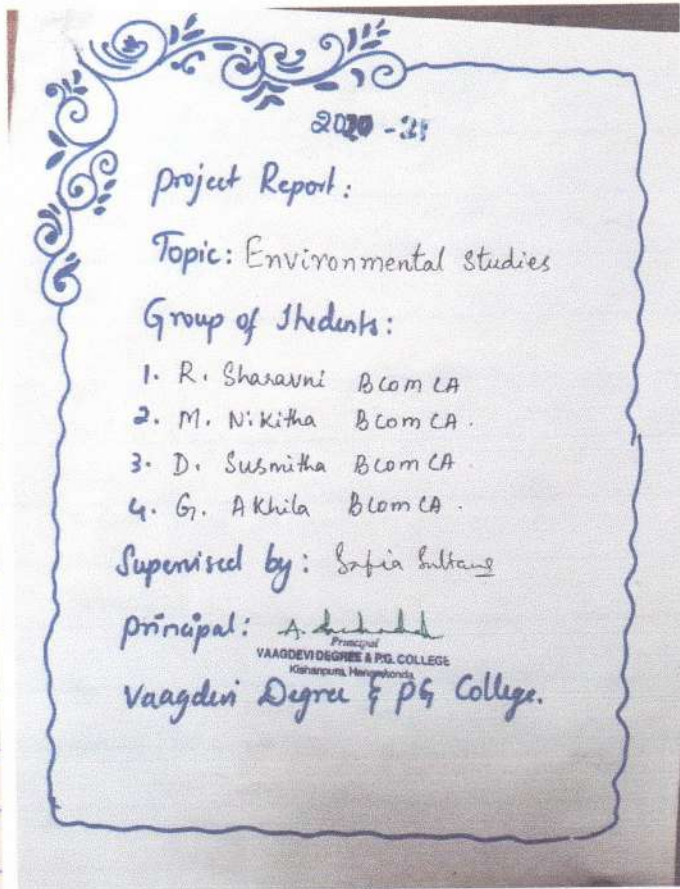 2020-21
project Report:
Topic: Environmental studies
Group of Stedents:
1. R. Sharavni BCom CA
2. M. Nikitha BCom CA.
3. D. Susmitha BCom CA.
4. G. Akhila BCom CA.
Supervised by: Safia Sultana
principal: A.
Principal
VAAGDEVI DEGREE & P.G. COLLEGE
Kishanpura, Hanamkonda
Vaagdevi Degree & PG College.